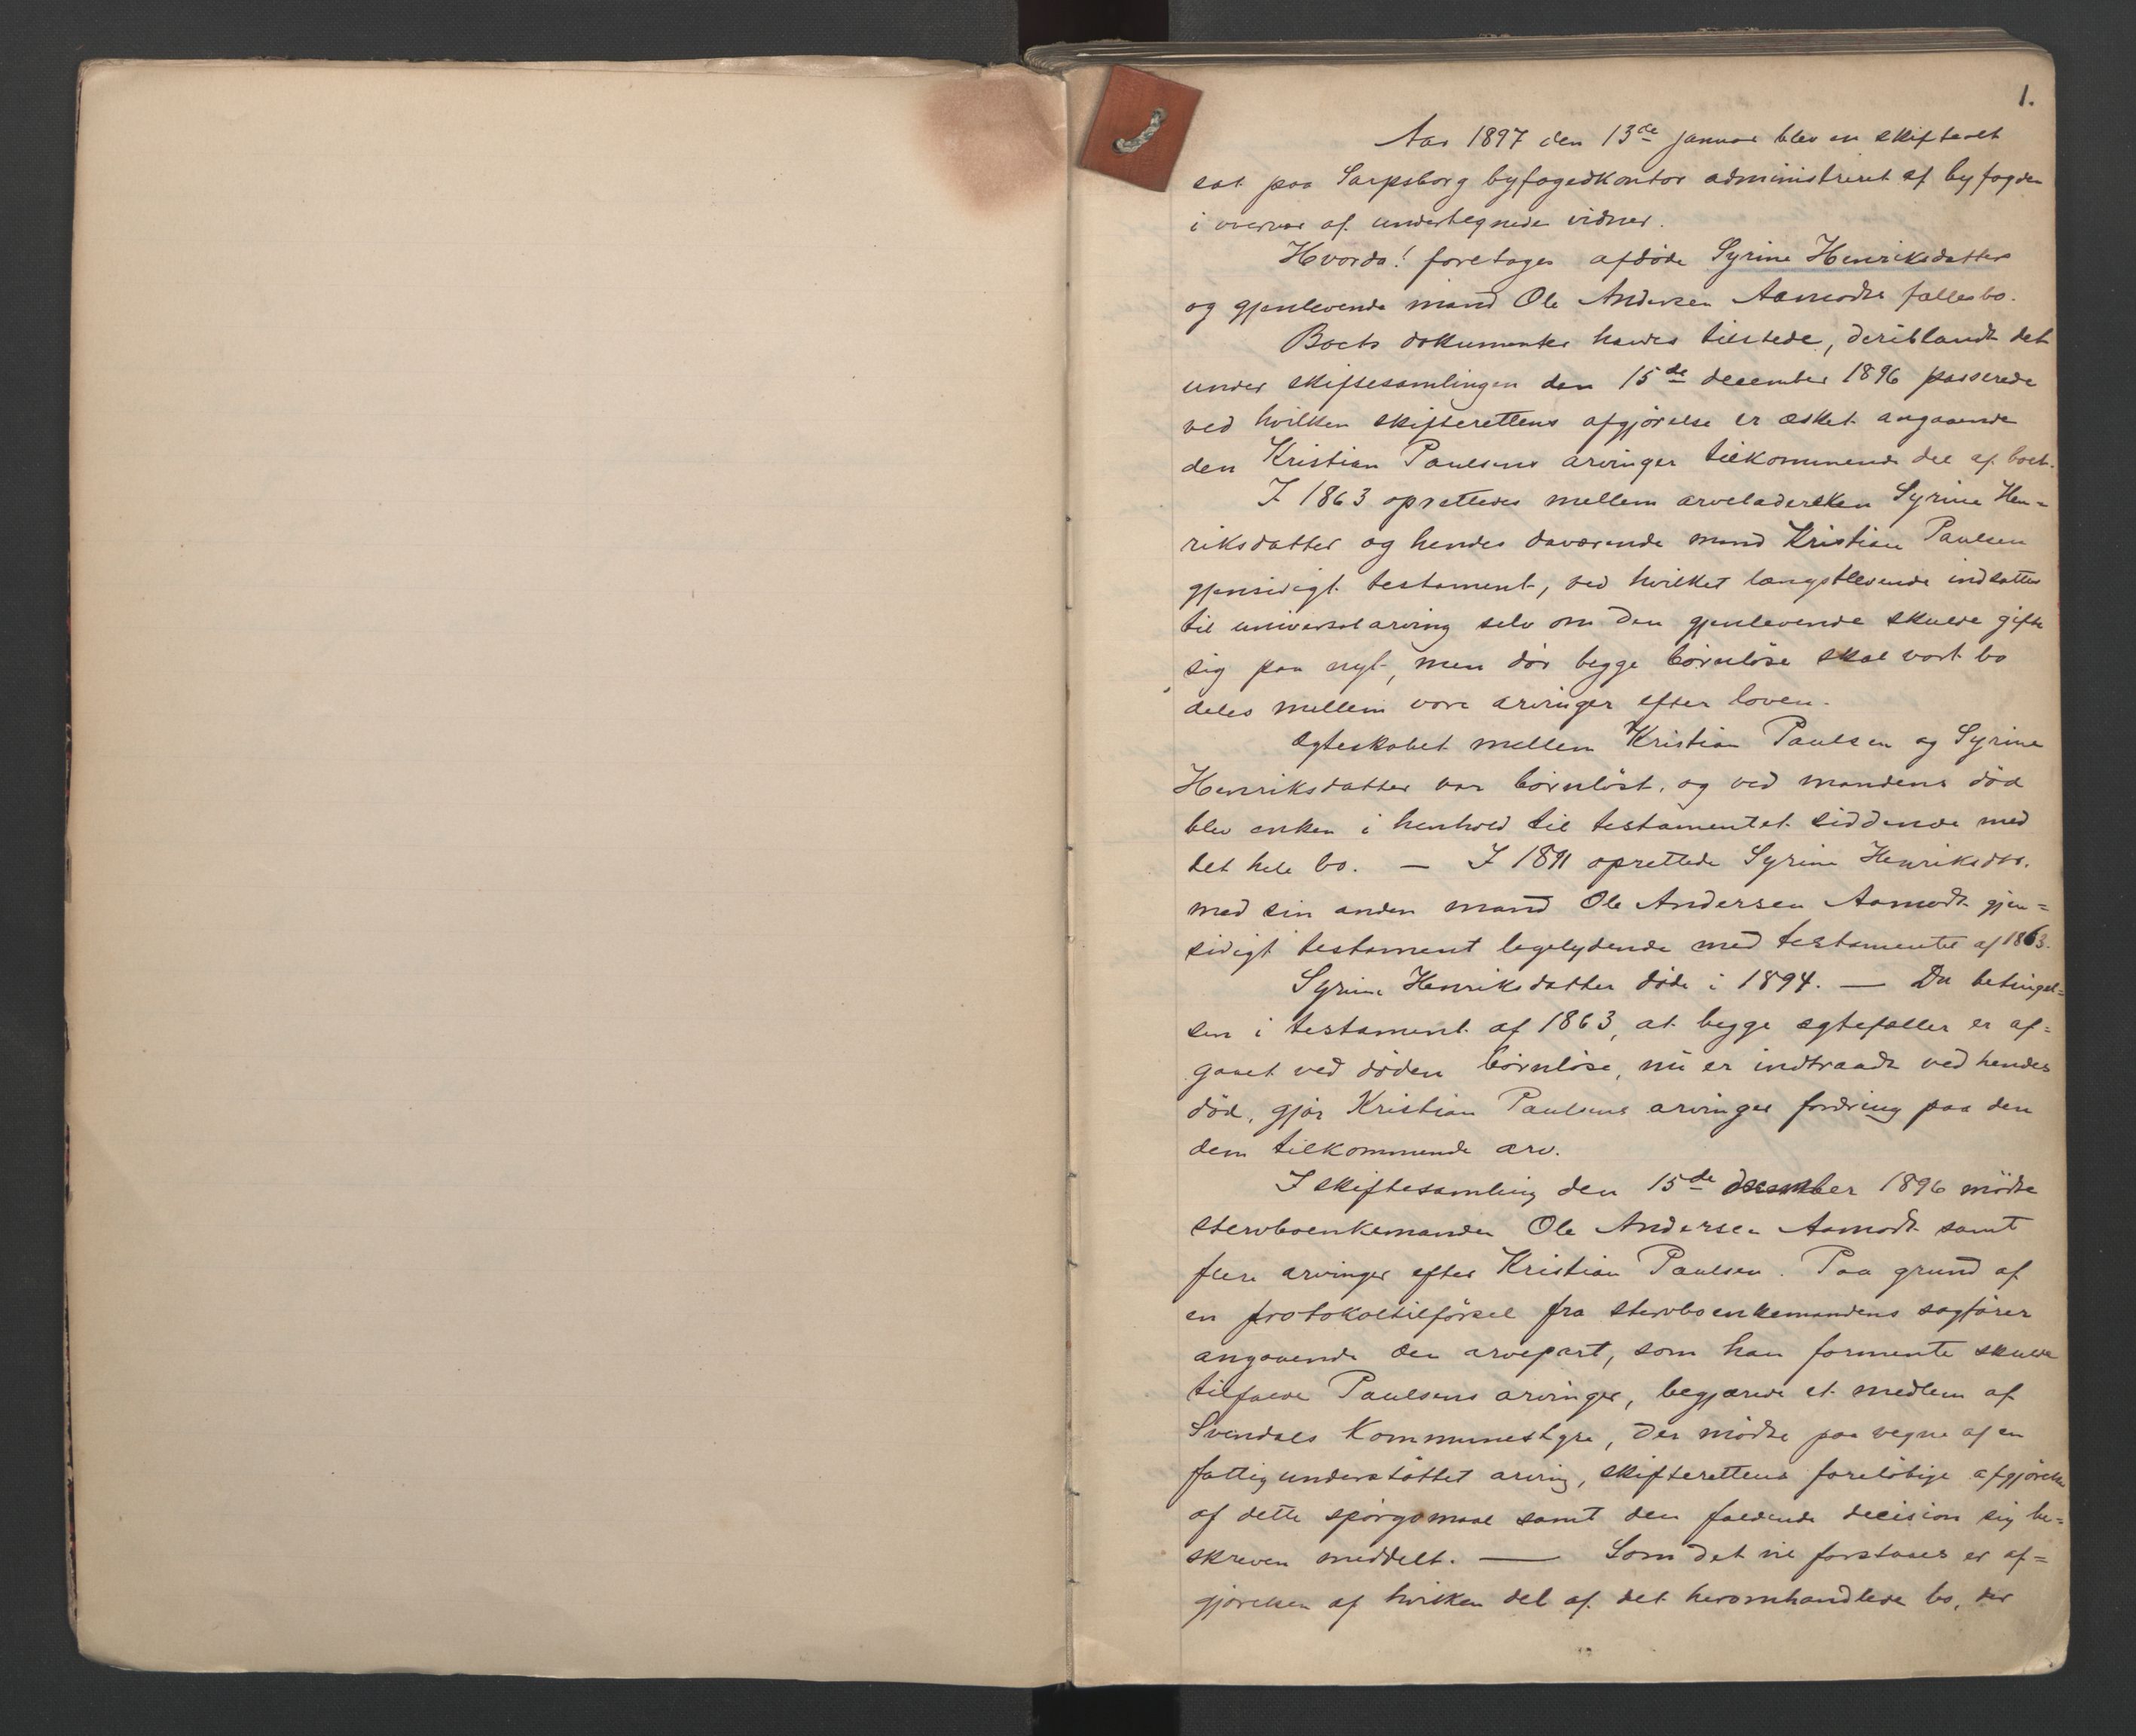 1.
Aar 1897 den 13de januar blev en skifteret
sat paa Sarpsborg byfogedkontor administreret af byfogden
i overvær af undertegnede vidner.
Hvorda! foretages afdøde Syrine Henriksdatter
og gjenlevende mand Ole Andersen Aamodts fællesbo.
Boets dokumenter havdes tilstede, deriblandt det
under skiftesamlingen den 15de december 1896 passerede
ved hvilken skifterettens afgjørelse er æsket angaaende
den Kristian Paulsens arvinger tilkommende del af boet.
I 1863 oprettedes mellem arveladersken Syrine Hen=
riksdatter og hendes daværende mand Kristian Paulsen
gjensidigt testament, ved hvilket længstlevende indsattes
til universalarving selv om den gjenlevende skulde gifte
sig paa nyt, men dør begge börnlöse skal vort bo
deles mellem vore arvinger efter loven.
Ægteskabet mellem Kristian Paulsen og Syrine
Henriksdatter var börnlöst, og ved mandens död
blev enken i henhold til testamentet siddende med
det hele bo. — I 1891 oprettede Syrine Henriksdtr.
med sin anden mand Ole Andersen Aamodt gjen=
sidigt testament ligelydende med testamentet af 1863.
Syrine Henriksdatter døde i 1894. — Da betingel=
sen i testament af 1863, at begge ægtefæller er af=
gaaet ved døden börnlöse, nu er indtraadt ved hendes
död, gjör Kristian Paulsens arvinger fordring paa den
dem tilkommende arv.
I skiftesamling den 15de december 1896 mödte
stervboenkemanden Ole Andersen Aamodt samt
flere arvinger efter Kristian Paulsen. Paa grund af
en protokoltilførsel fra stervboenkemandens sagfører
angaaende den arvepart, som han formente skulde
tilfalde Paulsens arvinger, begjærede et medlem af
Svindals Kommunestyre, der mödte paa vegne af en
fattigunderstöttet arving, skifterettens foreløbige afgjørelse
af dette spørgsmaal samt den faldende decision sig be=
skreven meddelt. — Som det vil forstaaes er af=
gjørelsen af hvilken del af det heromhandlede bo, der